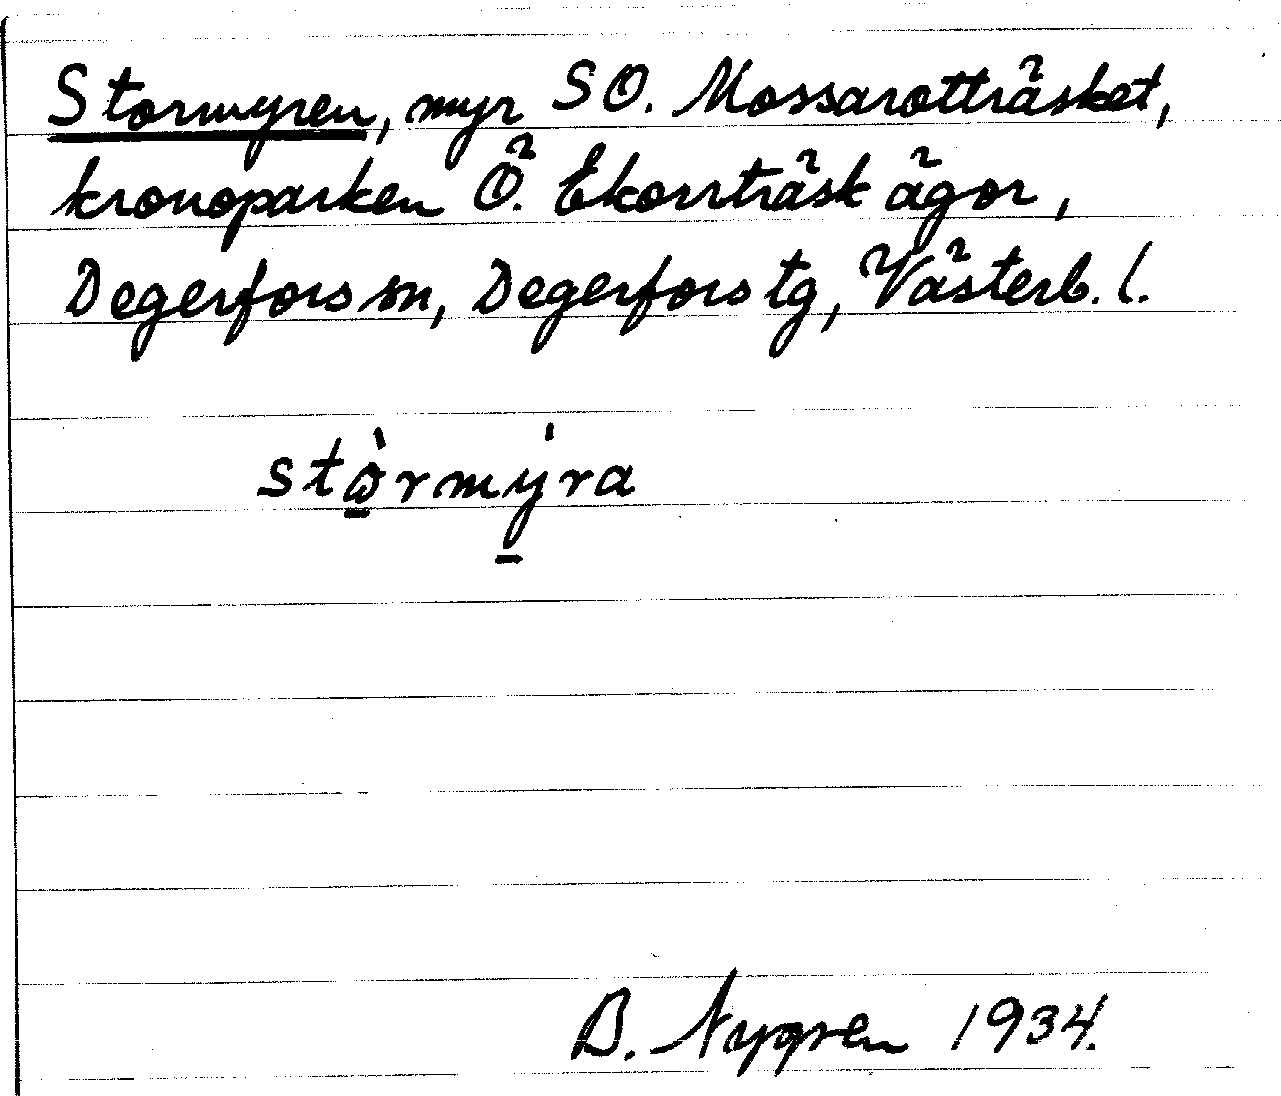 Stormyren, myr SO. Mossarotträsket,
kronoparken Ö. Ekorrträsk ägor,
Degerfors sn, Degerfors tg, Västerb. l.
stò̠rmý̠ra
B. Nygren 1934.